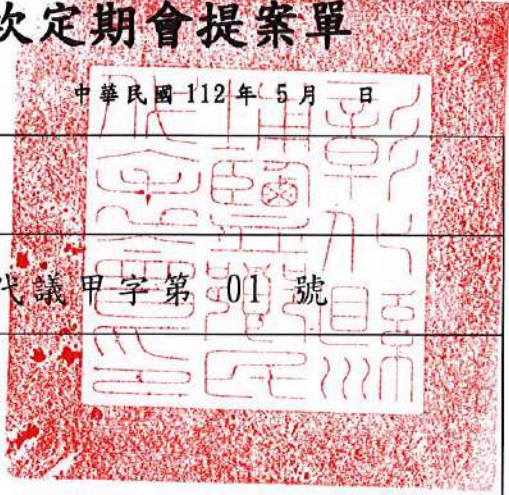 次定期會提案單
中華民國 112 年 5 月 日
代議甲字第 01 號